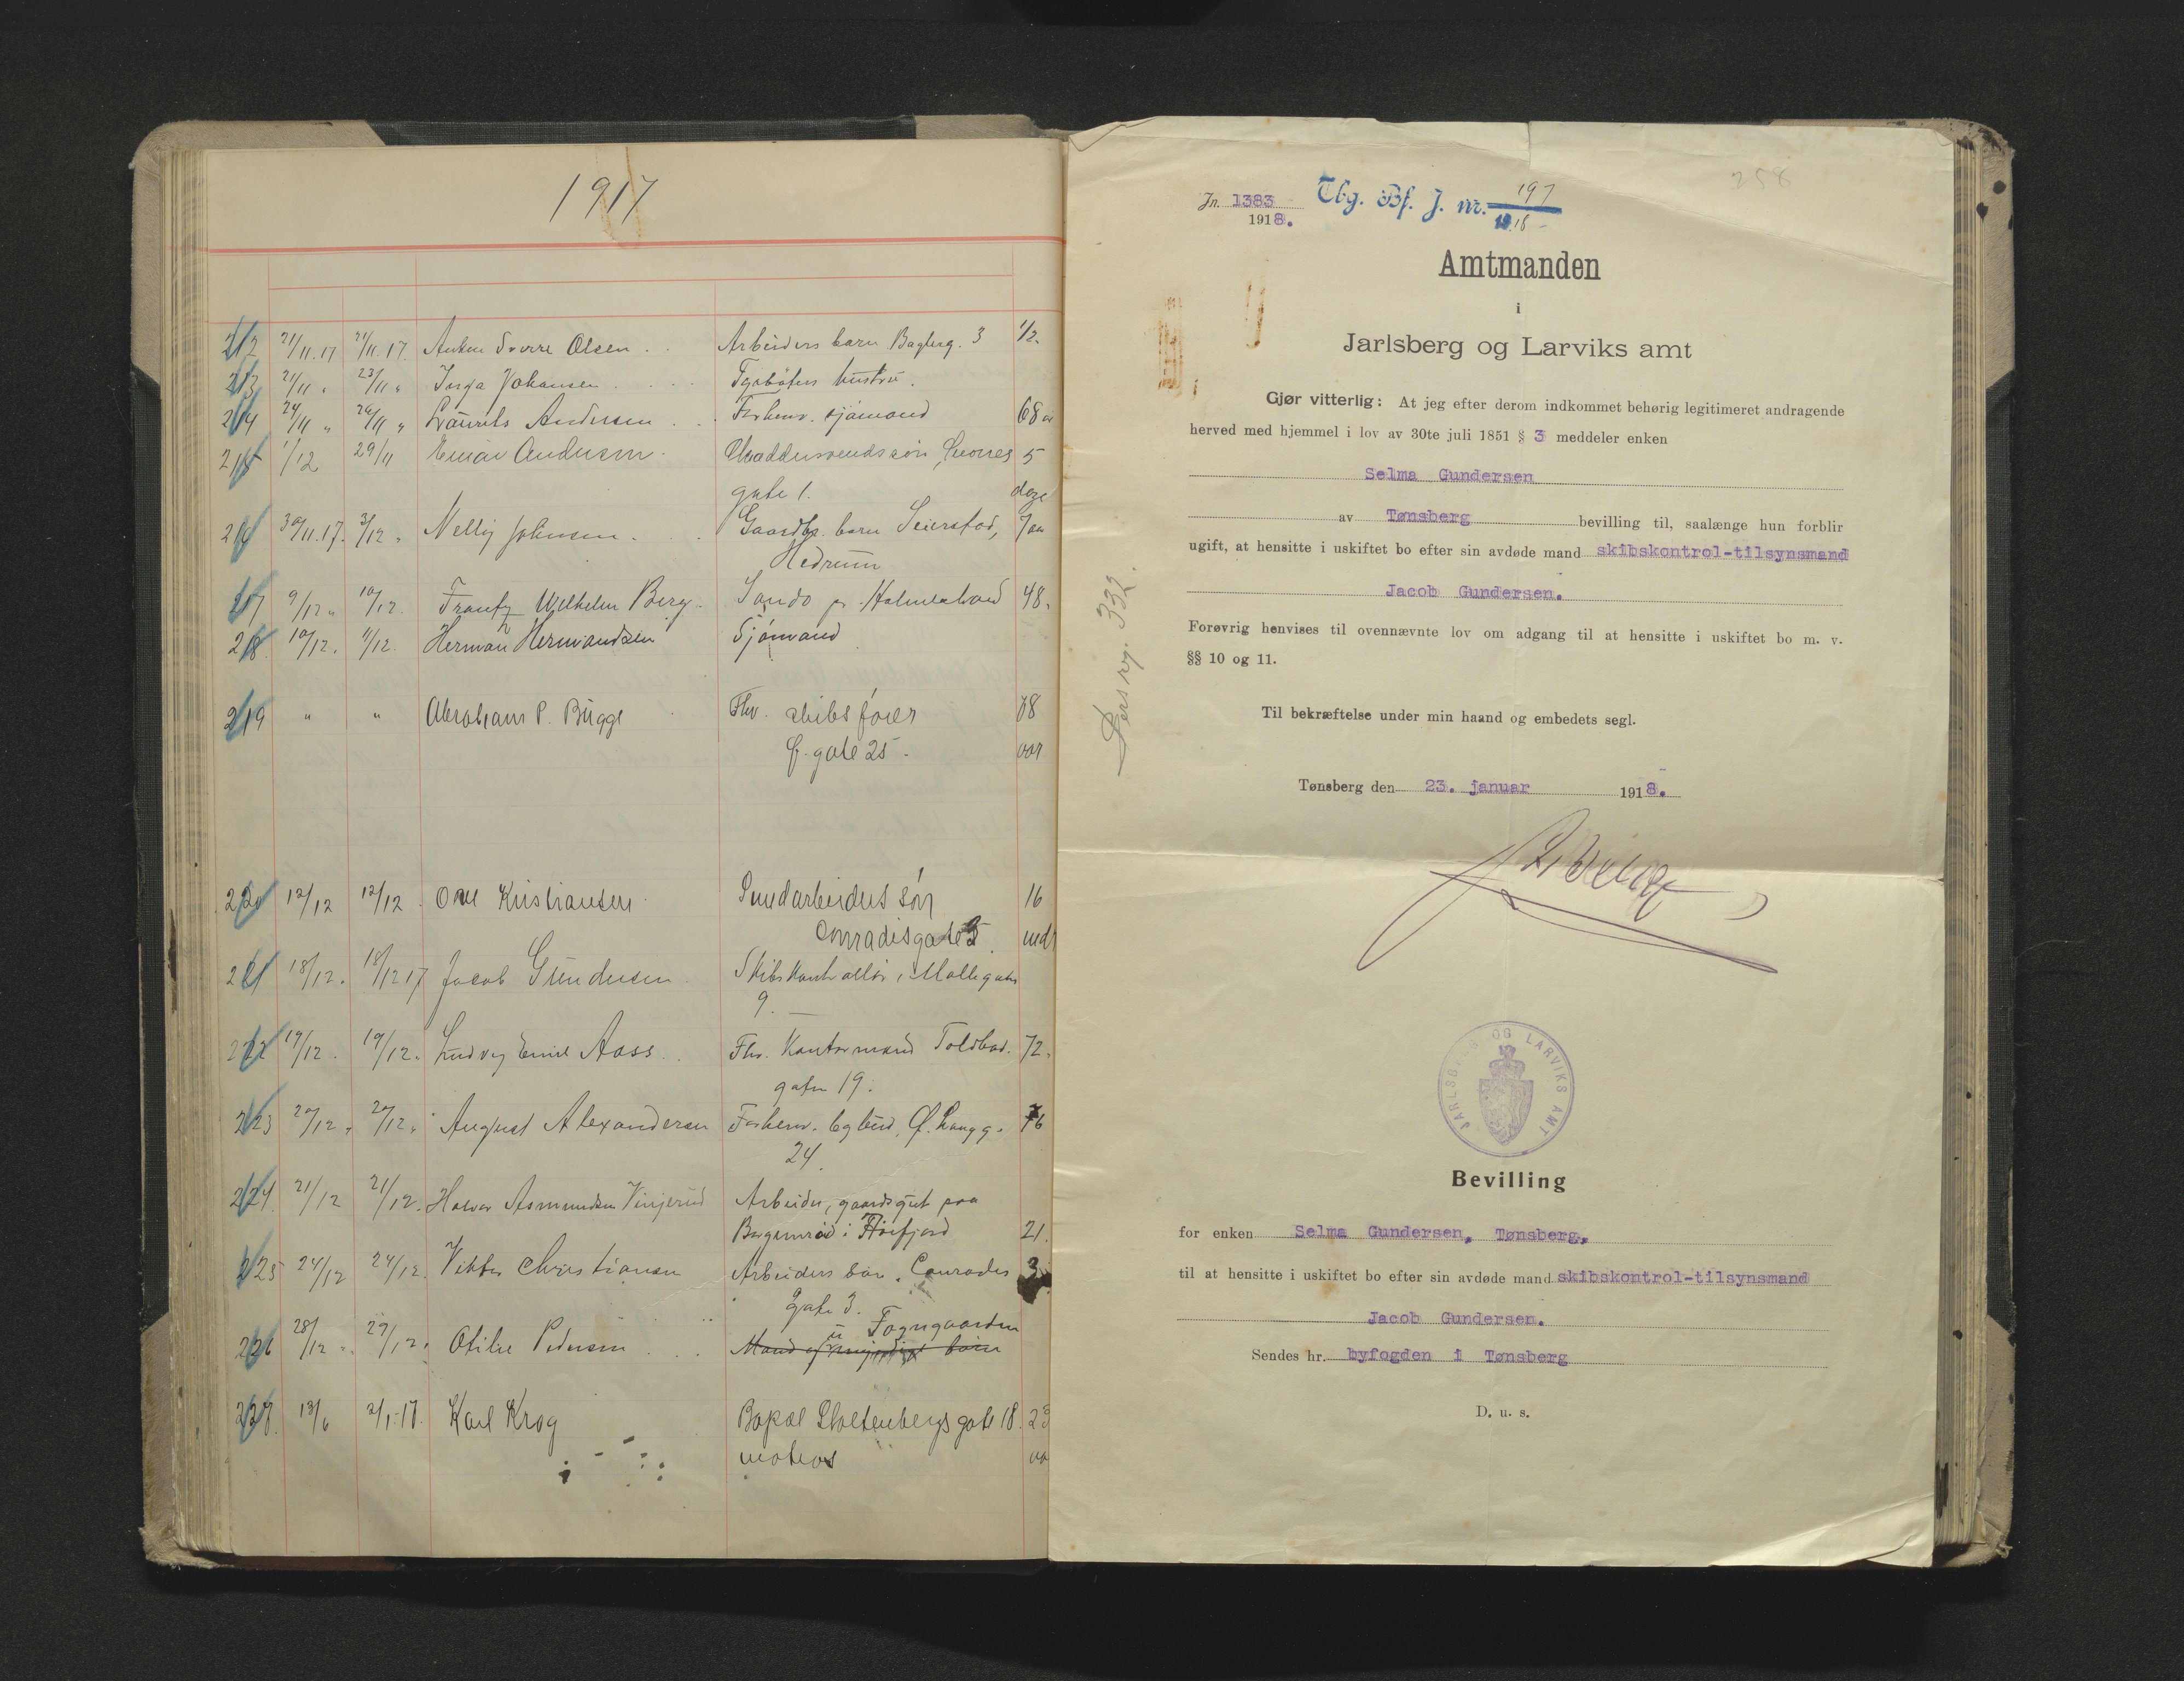 1917
212 21/11.17 21/11.17. Anton Sverre Olsen Arbeiders barn Baglerg. 3 1/2.
213 21/11 " 23/11 " Inga Johansen Typografs hustru.
214 24/11 " 26/11 " Laurits Andersen Forhenv. sjømand 68 a
215 1/12 29/11 Einar Andersen søn, 5
gate 1. dage
216 30/11.17. 3/12 " Nelly Johnsen Gaardbr. barn Seierstad, 7 aa
Hedrum
217 9/12 " 10/12. Frantz Wilhelm Berg Sando pr. Holmestrand 48.
218. 10/12. 11/12. Herman Hermandsen Sjømand
219 " " Abraham P. Bugge Fhv. skibsfører 78
gate 25. aar
220 12/12 12/12 Ove Kristiansen søn 16
Conradisgate 5. mdr
221 18/12. 18/12 17 Jacob Gundersen Skibskontrollør, Møllegaten
9.
222 19/12. 19/12. Ludvig Emil Aass Fhv. Kontormand Toldbod. 72.
gaten 19.
223 20/12 " 20/12 " August Alexandersen Forhenv. Ø. Langg. 76
24.
224. 21/12 21/12. Halvor Asmundsen Vinjerud Arbeider, gaardsgut paa
i 21.
225 24/12 24/12. Viktor Christiansen Arbeiders søn. Conrades 3
gate 3.
226 28/12 " 29/12 " Otilie Pedersen Fagngaarden
Mand og umyndige børn
228. 13/6 2/1.-17. Karl Krog Bopæl Stoltenbergs gate 18. 23
matros aa
258
Jn. 1383
1918.
Tbg. Bf. J. nr. 197
1918
Amtmanden
i
Jarlsberg og Larviks amt
Gjør vitterlig: At jeg efter derom indkommet behørig legitimeret andragende
herved med hjemmel i lov av 30te juli 1851 § 3 meddeler enken
Selma Gundersen
av Tønsberg bevilling til, saalænge hun forblir
ugift, at hensitte i uskiftet bo efter sin avdøde mand skibskontrol-tilsynsmand
Jacob Gundersen.
Forøvrig henvises til ovennævnte lov om adgang til at hensitte i uskiftet bo m. v.
§§ 10 og 11.
332.
Til bekræftelse under min haand og embedets segl.
Tønsberg den 23. januar 1918.
JARLSBERG OG LARVIKS AMT
Bevilling
for enken Selma Gundersen, Tønsberg,
til at hensitte i uskiftet bo efter sin avdøde mand skibskontrol-tilsynsmand
Jacob Gundersen.
Sendes hr. byfogden i Tønsberg
D. u. s.